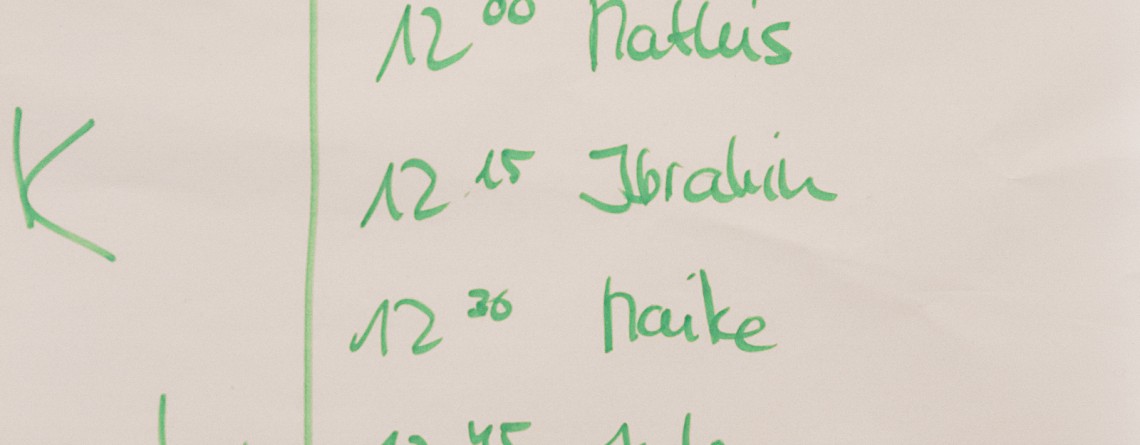 12 00 Mathis
K
12 15 Ibrahim
12 30 Maike
12 45